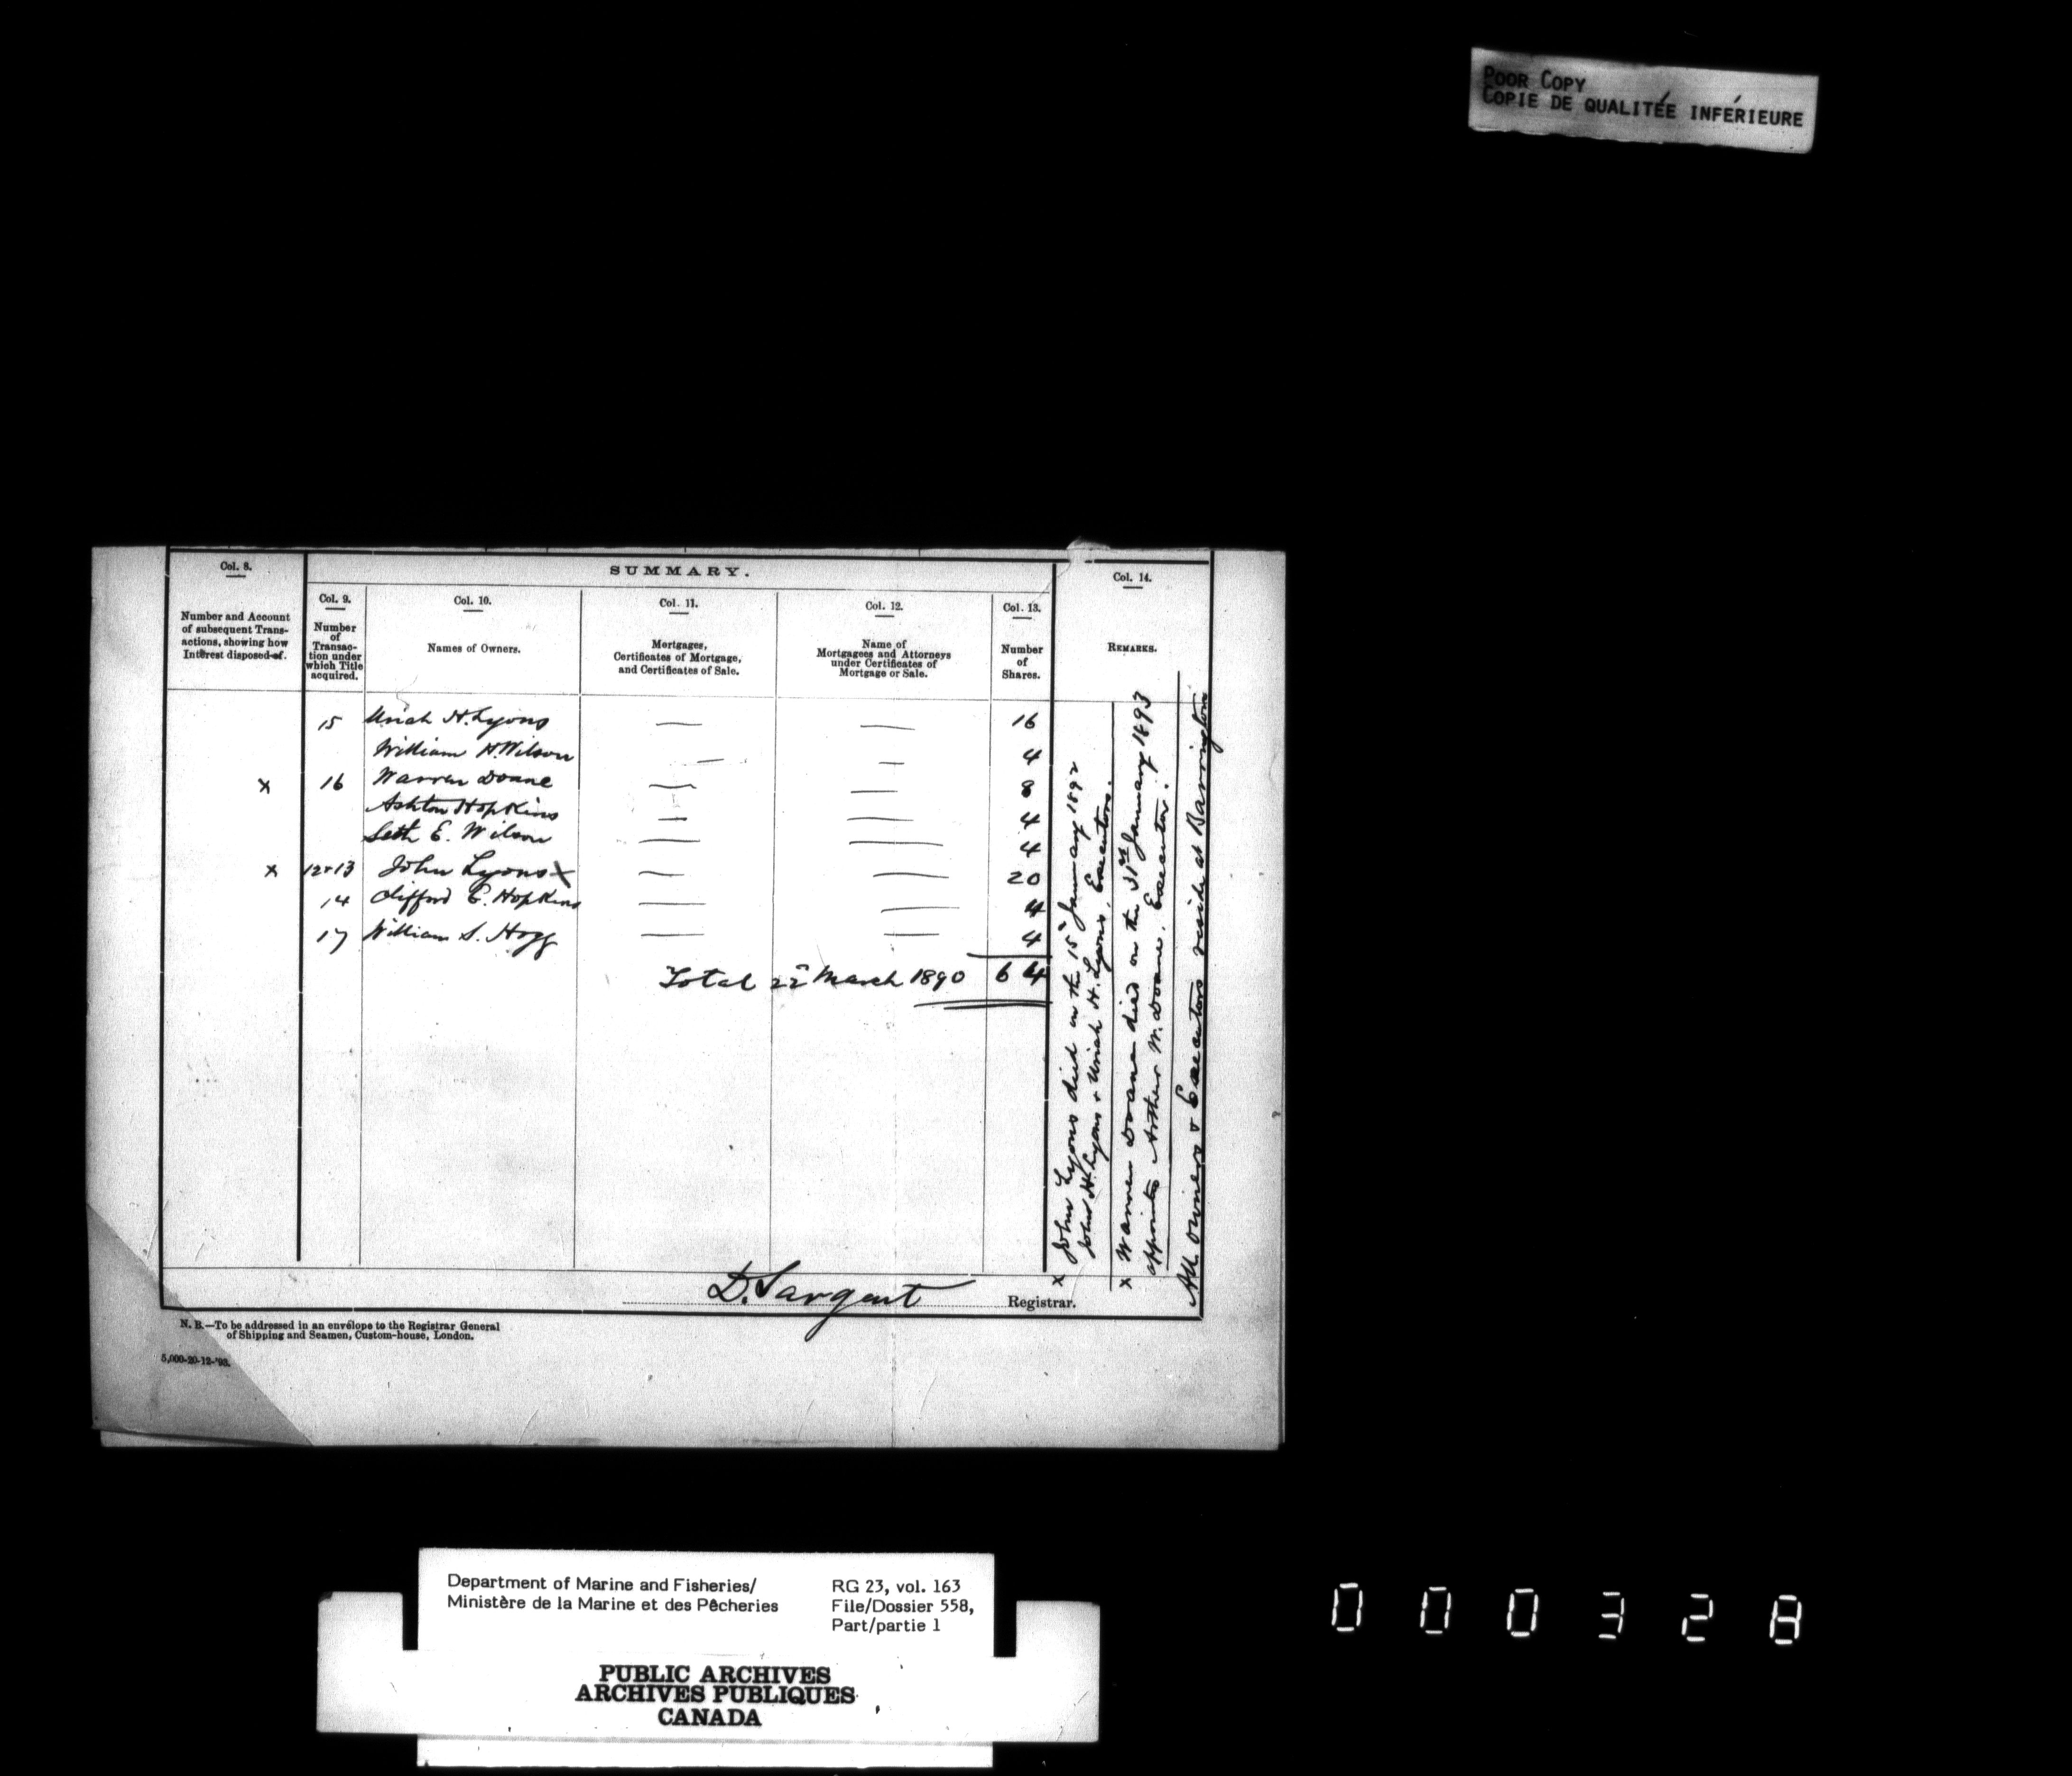 POOR COPY
COPIE DE QUALITÉE INFÉRIEURE
Col. 8.
Number and Account
of subsequent Trans-
actions, showing how
Interest disposed of.
SUMMARY.
Col. 9.
Number
of
Transac-
tion under
which Title
acquired.
Col. 10.
Names of Owners.
Col. 11.
Mortgages,
Certificates of Mortgage,
and Certificates of Sale.
Col. 12.
Name of
Mortgagees and Attorneys
under Certificates of
Mortgage or Sale.
Col. 13.
Number
of
Shares.
Col. 14.
REMARKS.
15 Uriah H. Lyons — — 16
William H. Wilson — — 4
x 16 Warren Doane — — 8
Ashton Hopkins — — 4
Seth E. Wilson — — 4
x 12+13 John Lyons x — — 20
14 Clifford E. Hopkins — — 4
17 William S. Hogg — — 4
Total 22nd March 1890 64
x John Lyons died on the 15th January 1892
John H. Lyons + Uriah H. Lyons, Executors.
x Warren Doane died on the 31st January 1893
appoints Arthur W. Doane, Executor.
All owners & Executors reside at Barrington
D. Sargent
Registrar.
N. B.—To be addressed in an envelope to the Registrar General
of Shipping and Seamen, Custom-house, London.
5,000-20-12-'93.
Department of Marine and Fisheries/
Ministère de la Marine et des Pêcheries
RG 23, vol. 163
File/Dossier 558,
Part/partie 1
PUBLIC ARCHIVES
ARCHIVES PUBLIQUES
CANADA
000328